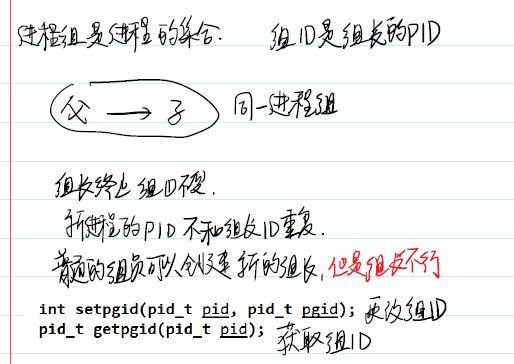 进程组是进程的集合. 组ID是组长的PID
父 → 子 同一进程组
组长终止组ID不变.
新进程的PID不和组长ID重复.
普通的组员可以创建新的组长,但是组长不行
int setpgid(pid_t pid, pid_t pgid); 更改组ID
pid_t getpgid(pid_t pid); 获取组ID